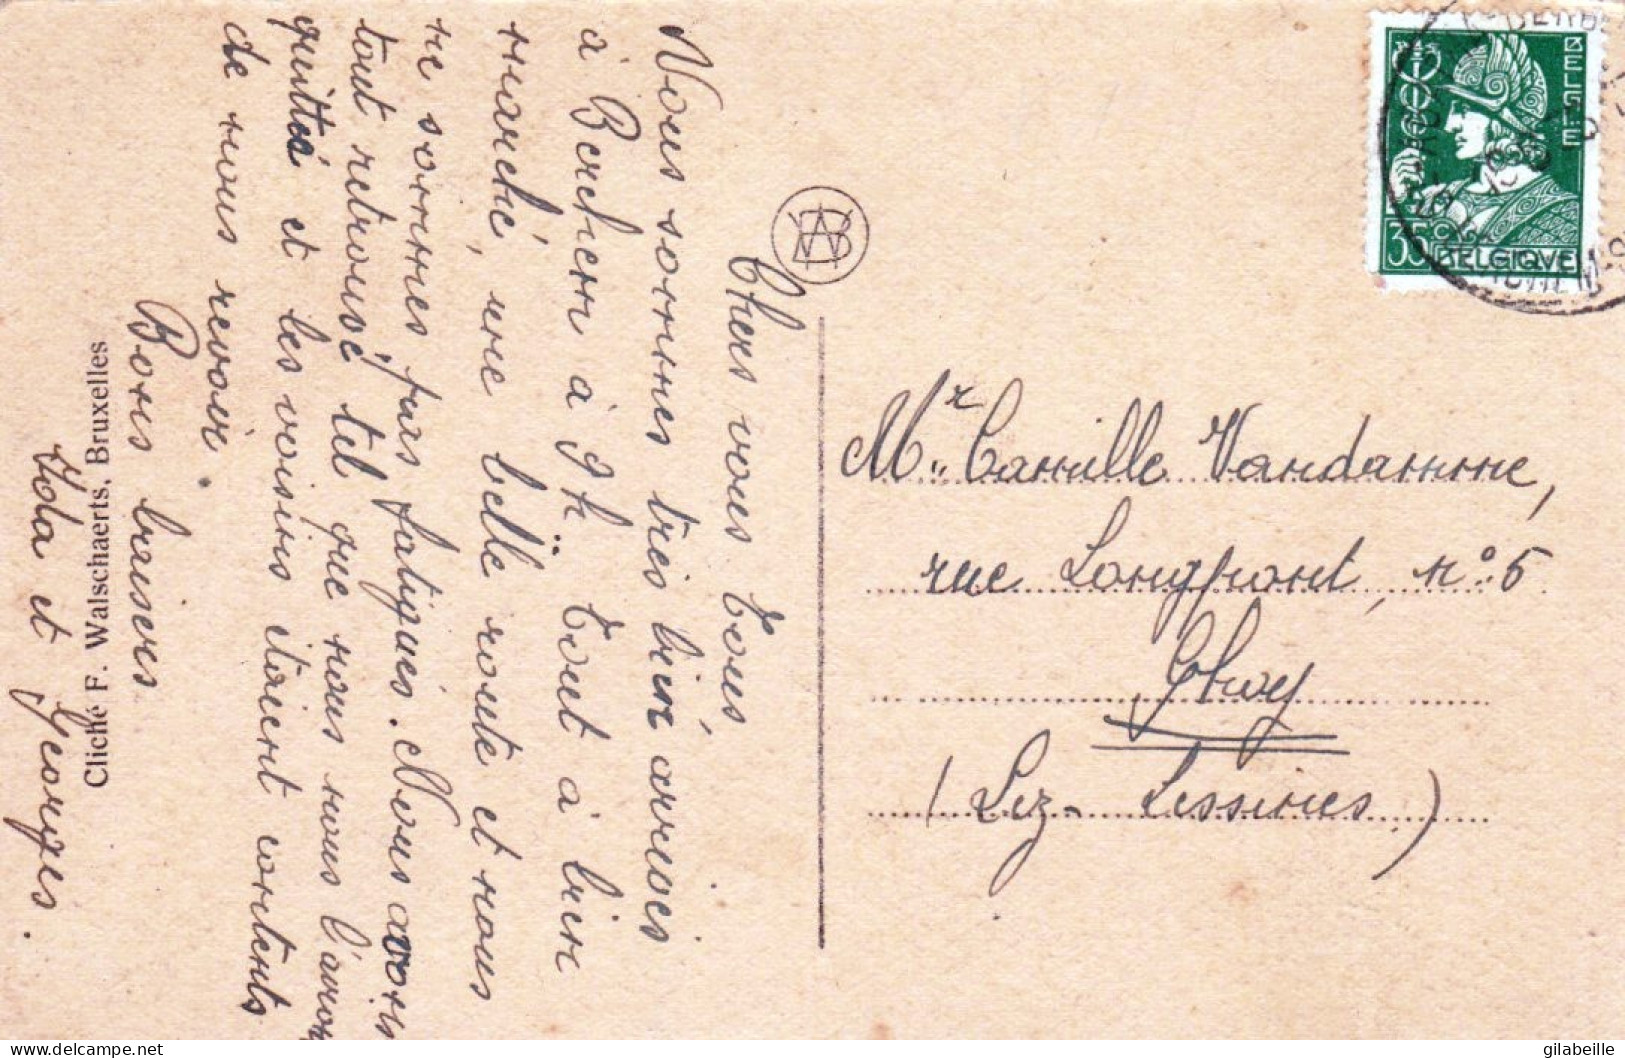 Chers vous tous,
Nous sommes très bien arrivés
à Berchem à 9 h. Tout a bien
marché, une belle route et nous
ne sommes pas fatigués. Nous avons
tout retrouvé tel que nous nous l'avons
quitté et les voisins étaient contents
de nous revoir.
Bons baisers
et Georges.
Cliché F. Walschaerts, Bruxelles
WB
BELGIE
35 c
BELGIQUE
Mr. Camille Vandamme,
rue Longpont, n° 5
(Lez-Lessines)
delcampe.net
gilabeille